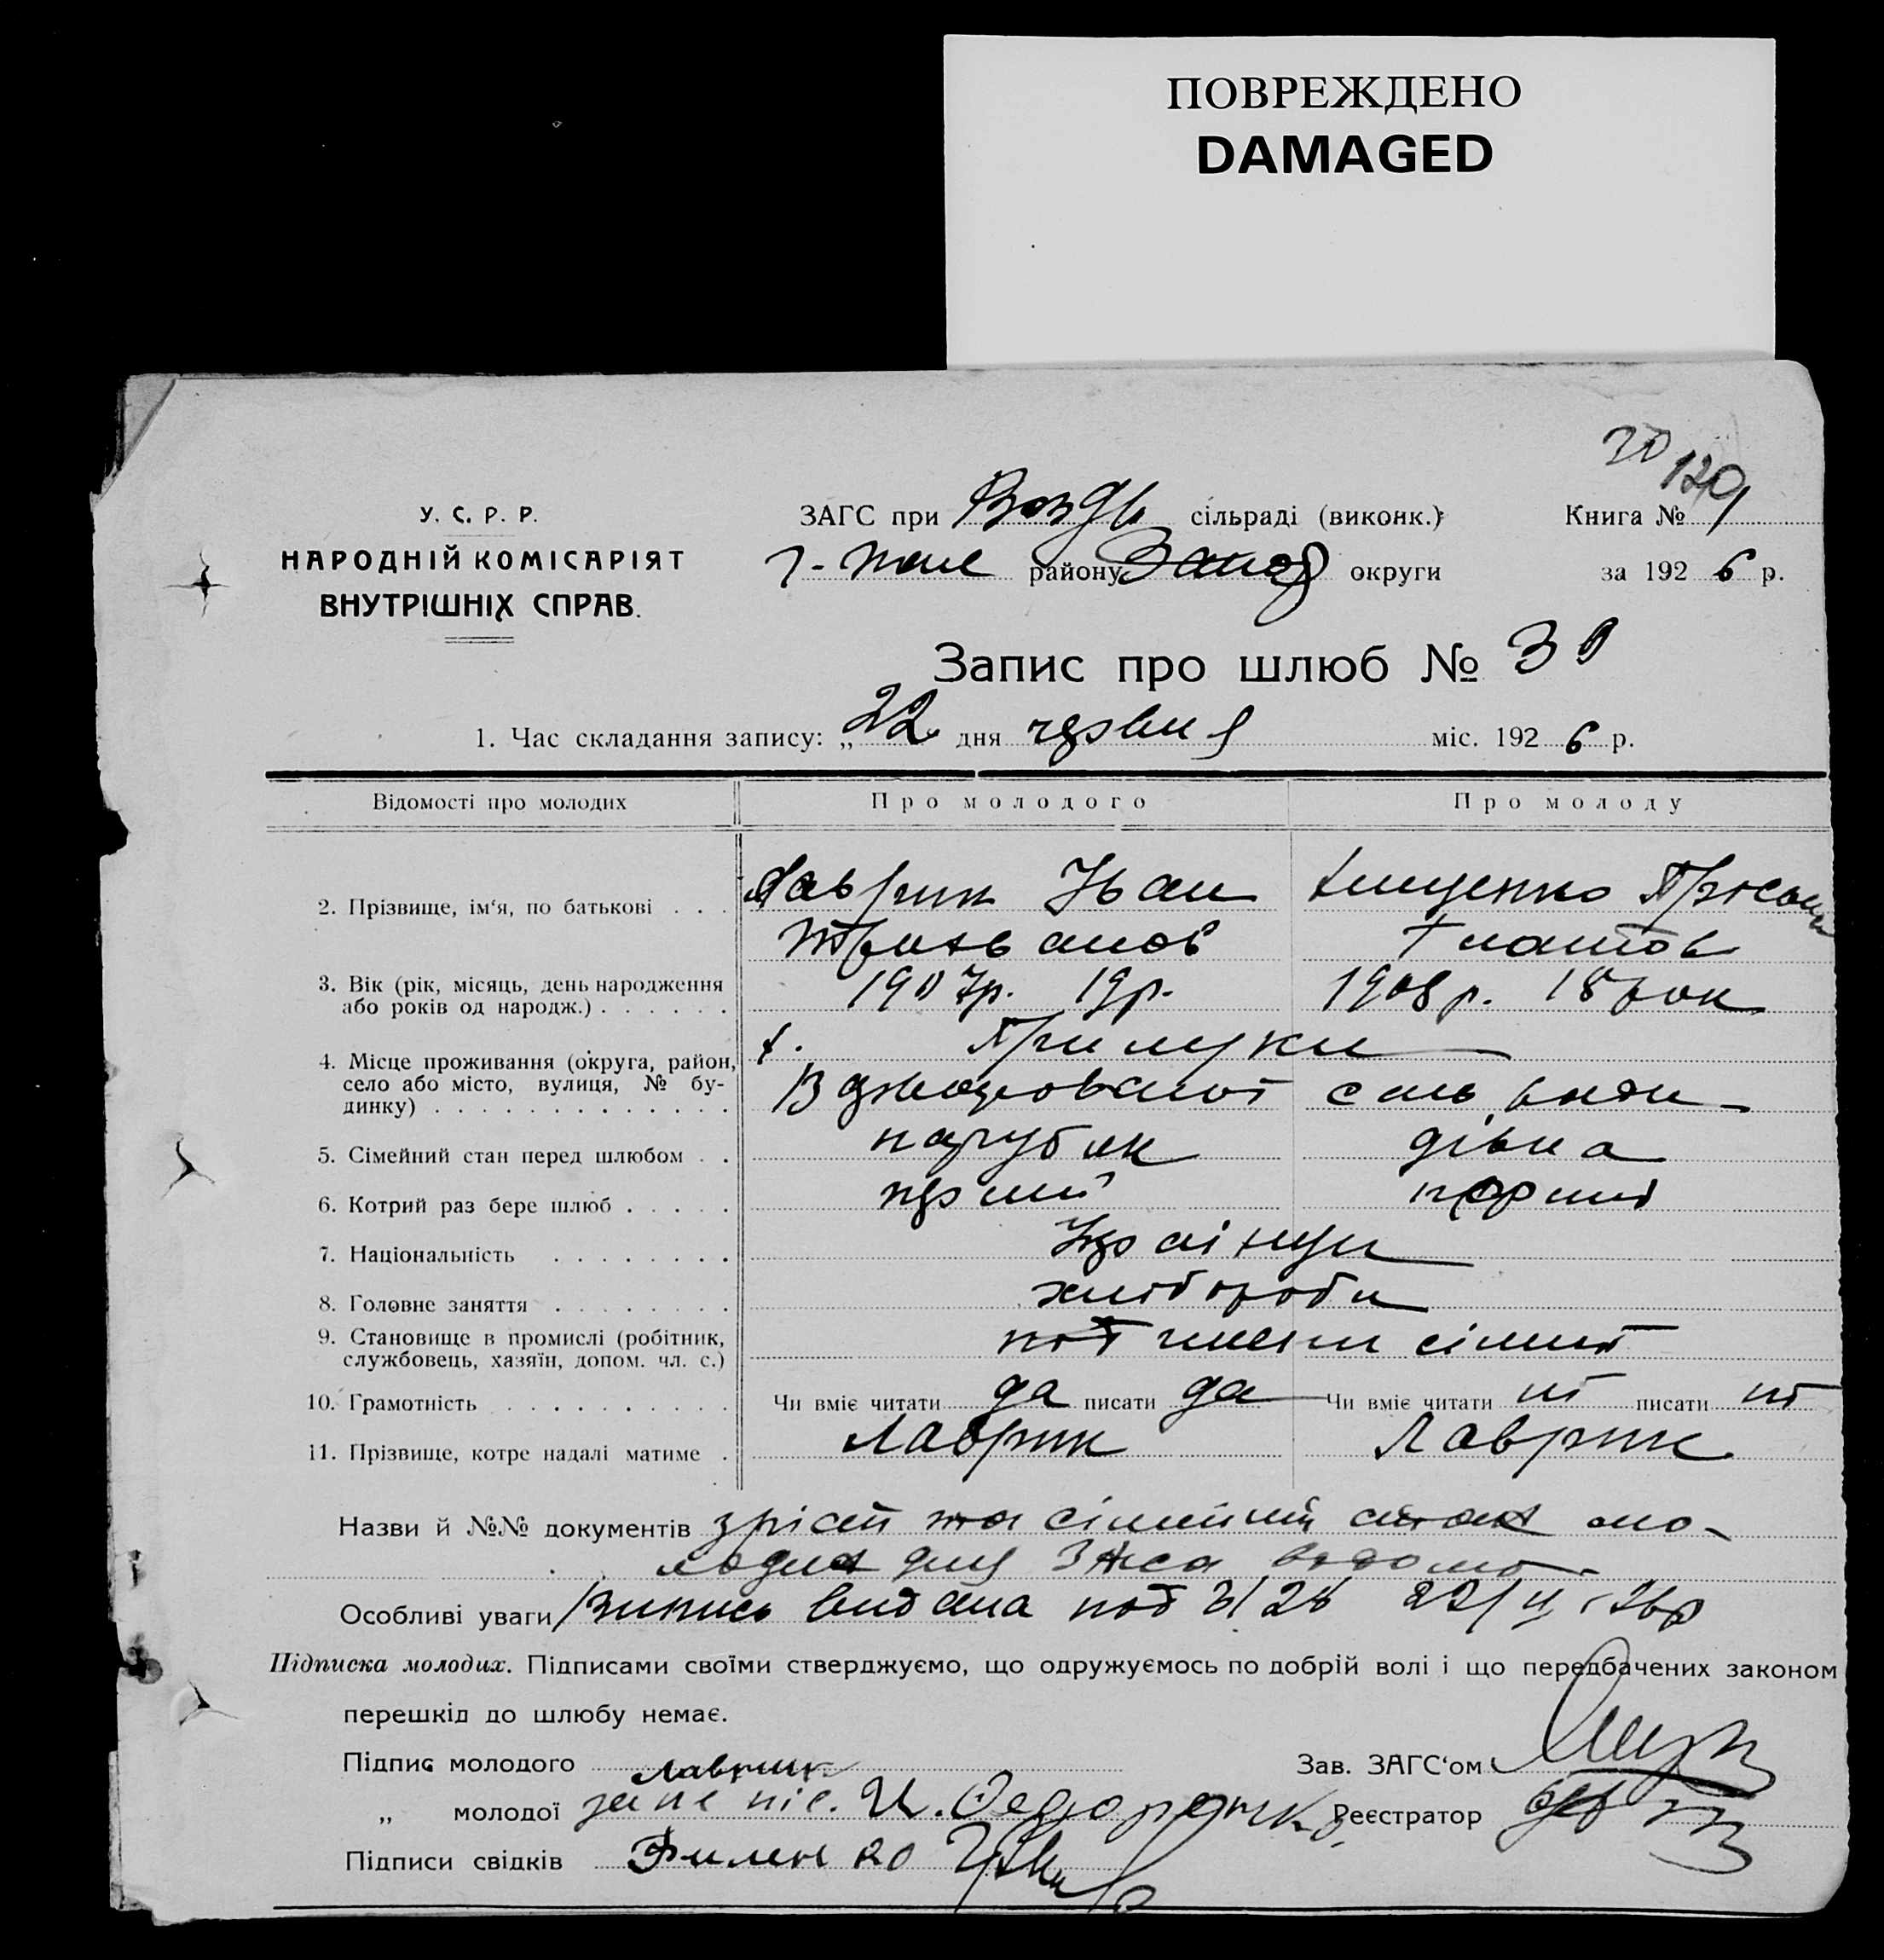 ПОВРЕЖДЕНО
DAMAGED
30
120
У. С. Р. Р.
НАРОДНІЙ КОМІСАРІЯТ
ВНУТРІШНІХ СПРАВ.
ЗАГС при Воздв сільраді (виконк.)
Книга №
Г-поле району Запор округи
за 1926 р.
Запис про шлюб № 39
1. Час складання запису: „22 дня червня міс. 1926 р.
Відомості про молодих
Про молодого
Про молоду
2. Прізвище, ім'я, по батькові . . .
Лаврик Іван
3. Вік (рік, місяць, день народження
або років од народж.) . . . . . .
1907р. 19р.
1908р. 18 рок
4. Місце проживання (округа, район,
село або місто, вулиця, № бу-
динку) . . . . . . . . . . . . .
с. Прилуки
5. Сімейний стан перед шлюбом . .
парубок
дівка
6. Котрий раз бере шлюб . . . . .
перший
перший
7. Національність . . . . . . . .
Українци
8. Головне заняття . . . . . . . .
хлібороби
9. Становище в промислі (робітник,
службовець, хазяїн, допом. чл. с.)
члени сімї
10. Грамотність . . . . . . . . . .
Чи вміє читати да писати да
Чи вміє читати ні писати ні
11. Прізвище, котре надалі матиме .
Лаврик
Лаврик
Назви й №№ документів зріст та сімейний стан мо-
лодих для ЗАГСа відомо
Особливі уваги Випись видана под 22/VI 26р
Підписка молодих. Підписами своїми стверджуємо, що одружуємось по добрій волі і що передбачених законом
перешкід до шлюбу немає.
Підпис молодого Лаврик
Зав. ЗАГС'ом
„ молодої за не піс. И. Федоренко
Реєстратор
Підписи свідків